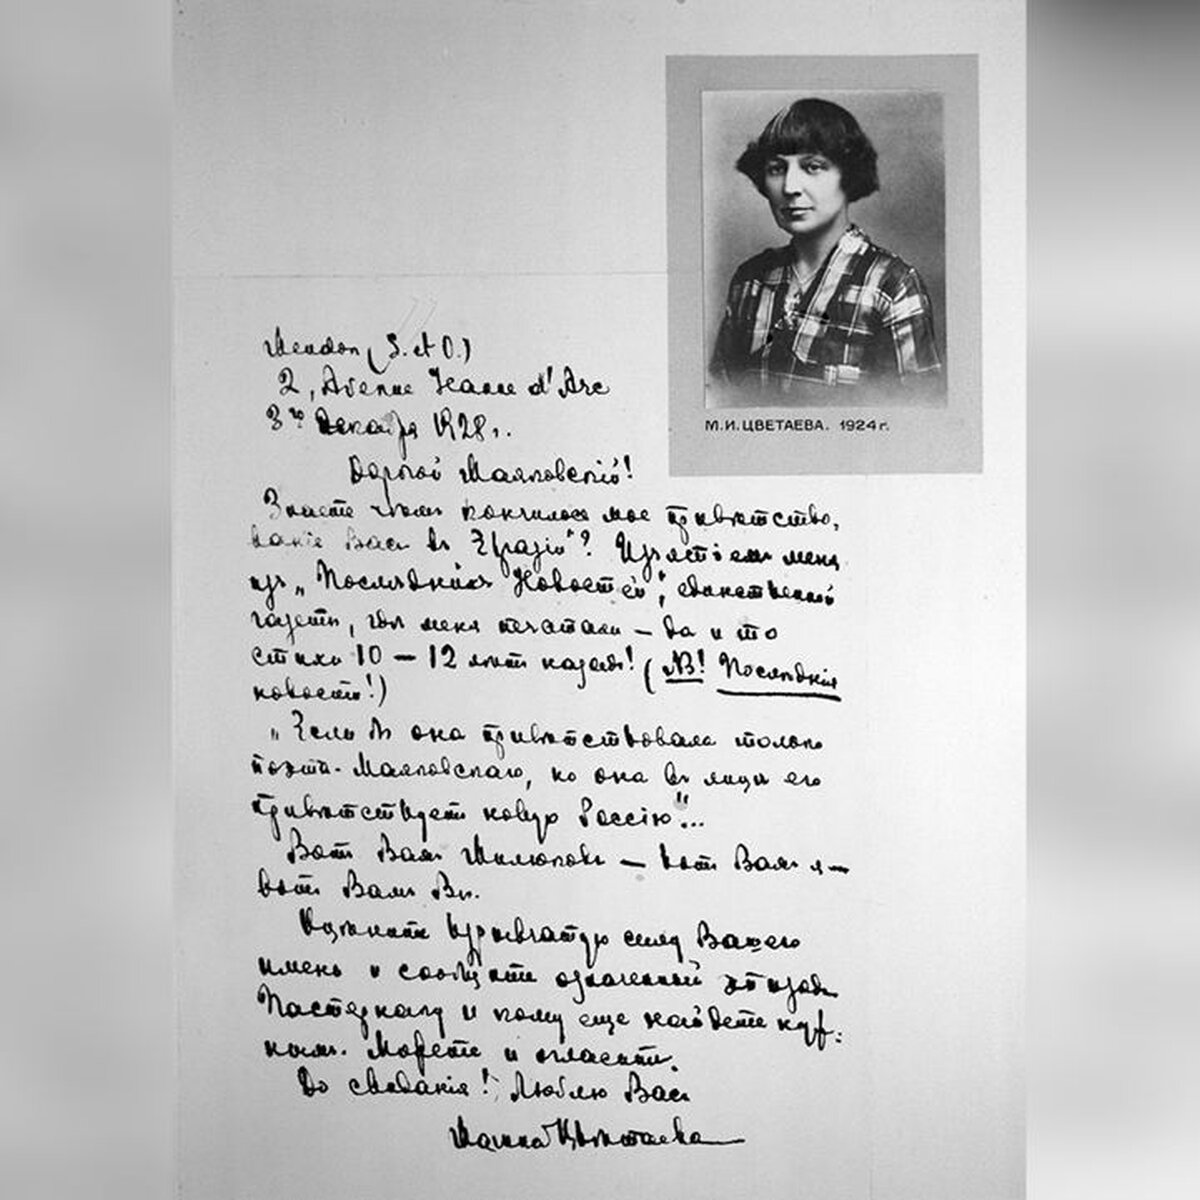 М.И.ЦВЕТАЕВА. 1924 г.
Meudon (S. et O.)
2, Avenue Jeanne d'Arc
3го Декабря 1928 г.
Дорогой Маяковскій!
Знаете чѣмъ кончилось мое привѣтство-
ваніе Васъ въ Евразіи"? Изъятіемъ меня
изъ „Послѣднихъ Новостей", единственной
газеты, гдѣ меня печатали — да и то
стихи 10 — 12 лѣтъ назадъ! (NB! Послѣднія
новости!)
„Если бъ она привѣтствовала только
поэта-Маяковскаго, но она въ лицѣ его
привѣтствуетъ новую Россію"...
Вотъ Вамъ Милюковъ — вотъ Вамъ я —
вотъ Вамъ Вы.
Оцѣните взрывчатую силу Вашего
имени и сообщите означенный эпизодъ
Пастернаку и кому еще найдете нуж-
нымъ. Можете и огласить.
До свиданія! Люблю Васъ
Марина Цвѣтаева